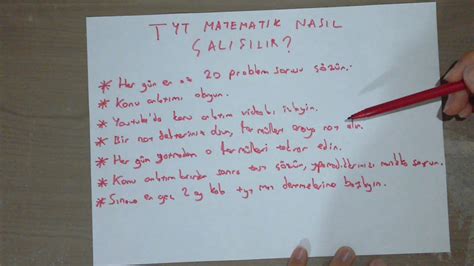 TYT MATEMATİK NASIL
ÇALIŞILIR?
* Her gün en az 20 problem sorusu çözün.
* Konu anlatımı okuyun.
* Youtube'da konu anlatım videosu izleyin.
* Bir not defteriniz olsun, formülleri oraya not alın.
* Her gün yatmadan o formülleri tekrar edin.
* Konu anlatımlarından sonra test çözün, yapamadıklarınızı mutlaka sorun.
* Sınava en geç 2 ay kala tyt mat denemelerine başlayın.